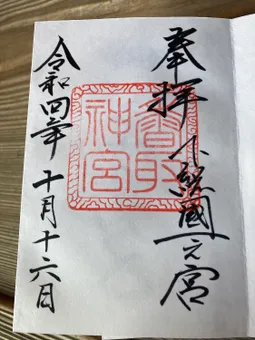 奉拝
下総國一之宮
香取神宮
令和四年十月十六日